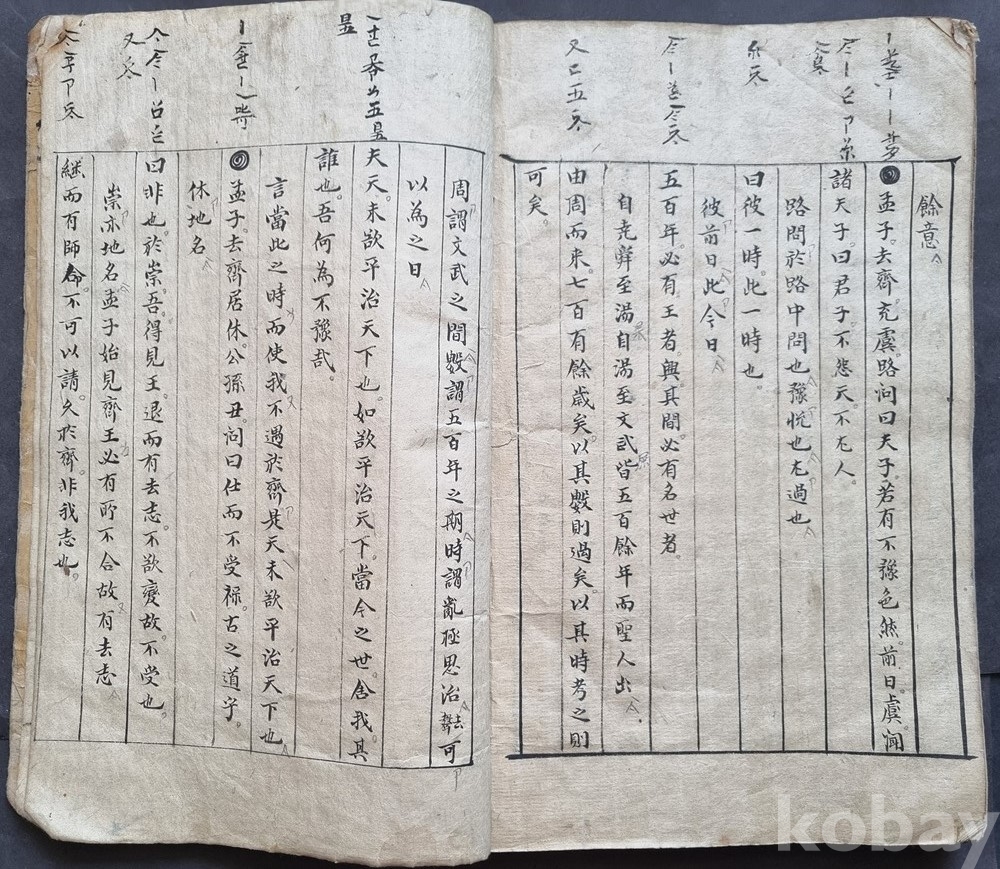 餘意
孟子去齊充虞路問曰夫子若有不豫色然前日虞聞
諸夫子曰君子不怨天不尤人
路問於路中問也豫悅也尤過也
曰彼一時此一時也
彼前日此今日
五百年必有王者興其間必有名世者
自堯舜至湯自湯至文武皆五百餘年而聖人出
由周而来七百有餘歲矣以其數則過矣以其時考之則
可矣
周謂文武之間數謂五百年之期時謂亂極思治去聲可
以為之日
夫天未欲平治天下也如欲平治天下當今之世舍我其
誰也吾何為不豫哉
言當此之時而使我不遇於齊是天未欲平治天下也
孟子去齊居休公孫丑問曰仕而不受祿古之道乎
休地名
曰非也於崇吾得見王退而有去志不欲變故不受也
崇亦地名孟子始見齊王必有所不合故有去志
継而有師命不可以請久於齊非我志也
kobay